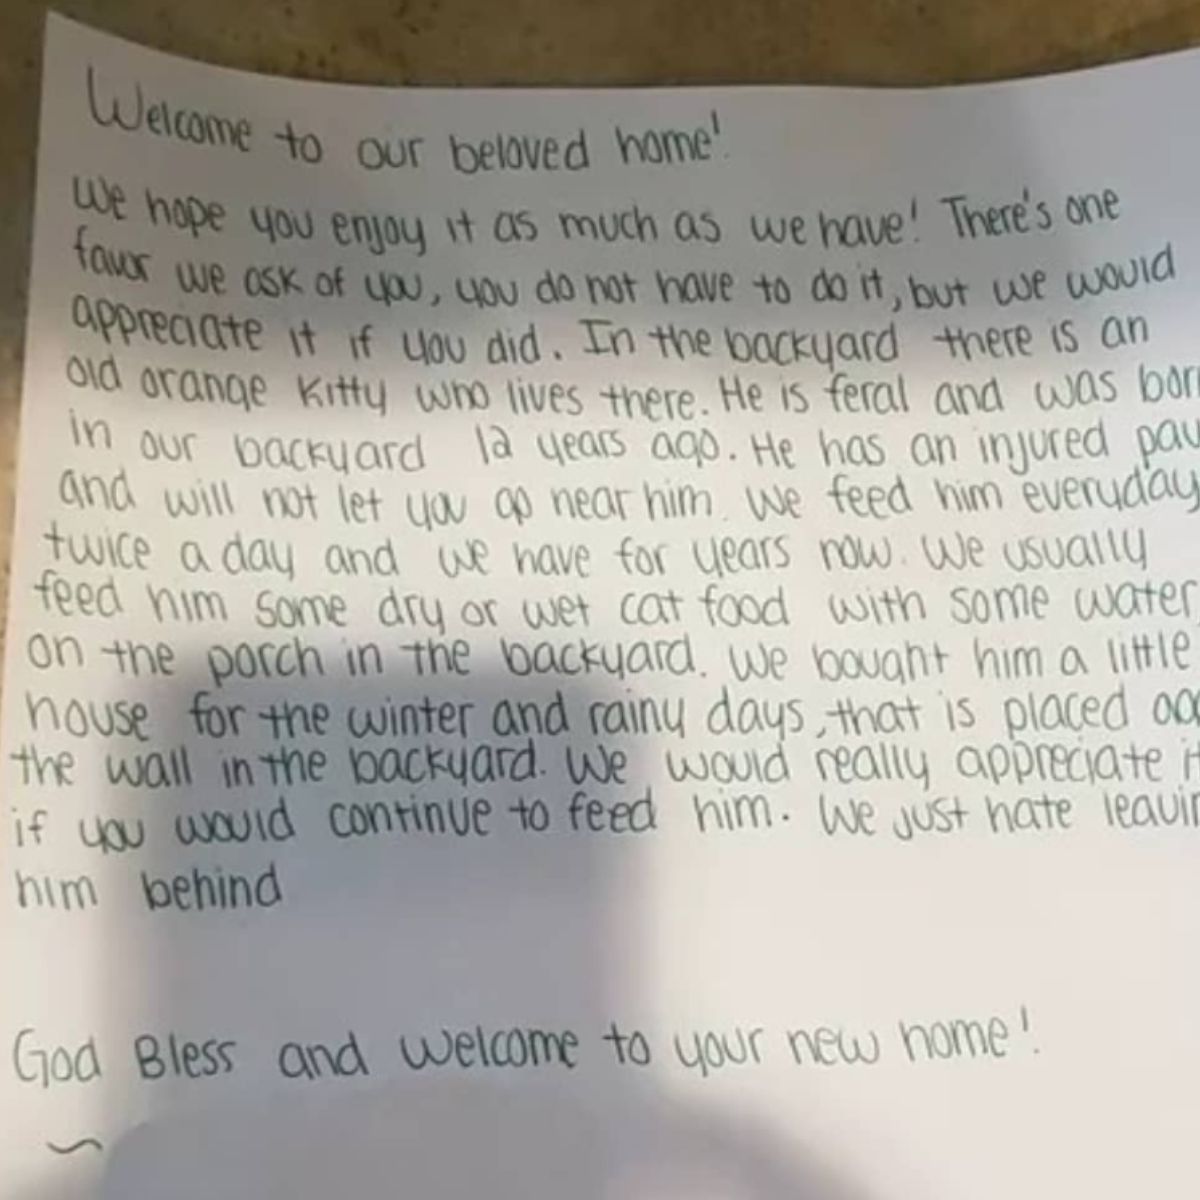 Welcome to our beloved home!
We hope you enjoy it as much as we have! There's one
favor we ask of you, you do not have to do it, but we would
appreciate it if you did. In the backyard there is an
old orange Kitty who lives there. He is feral and was bor
in our backyard 12 years ago. He has an injured paw
and will not let you go near him. We feed him everyday
twice a day and we have for years now. We usually
feed him some dry or wet cat food with some water
on the porch in the backyard. We bought him a little
house for the winter and rainy days, that is placed aga
the wall in the backyard. We would really appreciate it
if you would continue to feed him. We just hate leavin
him behind
God Bless and welcome to your new home!
~